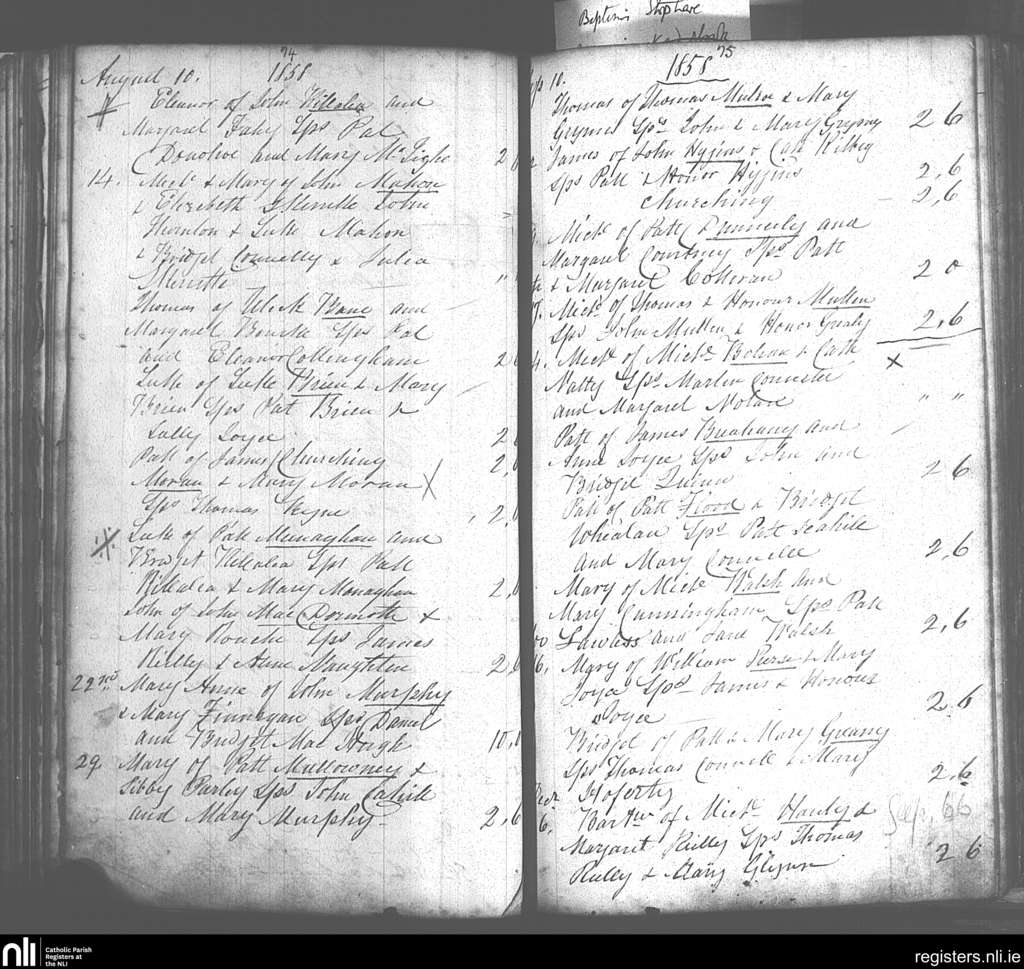 Baptisms Shop
74
August 10. 1858
Eleanor of John Killalea and
Margaret Fahy Sps Pat
Donohoe and Mary McTighe 2
14. Michl & Mary of John Mahon
& Elizabeth Skerrette John
Thornton & Luke Mahon
& Bridget Connelly & Julia
Skerrette
Thomas of Ulick Bane and
Margaret Bourke Sps Pat
and Eleanor Cottingham 2
Luke of Luke Brien & Mary
Brien Sps Pat Brien &
Sally Joyce 2
Patt of James Churching 2,
Moran & Mary Moran X
Sps Thomas 2,
Luke of Patt Munaghan and
Bridget Killalea Sps Patt
Killalea & Mary Monaghan 2
John of John MacDormotte &
Mary Rourke Sps James
Rielly & Anne Naughten 2,6
22nd. Mary Anne of John Murphy
& Mary Finnegan Sps Daniel
and Bridget Mac Hugh 10,0
29. Mary of Patt Mullowney &
Sibby Varley Sps John Cahill
and Mary Murphy 2,6
75
10. 1858
Thomas of Thomas Mulroe & Mary
Grynn Sps John & Mary Grynn 2 6
James of John Hygins & Cath Kilbey
Sps Patt & Honor Hygins 2,6
Churching 2,6
Michl of Patt Dunnerly and
Margaret Courtney Sps Patt
& Margaret Cohoran 2 0
Michl of Thomas & Honour Mullen
Sps John Mullen & Honor Grealy 2,6
Michl of Michl & Cath X
Natty Sps Martin
and Margaret " "
Patt of James and
Anne Joyce Sps John and
Bridget Quinn 2 6
Patt of Patt Flood & Bridget
Whealan Sps Patt
and Mary Connelle 2,6
Mary of Michl Walsh and
Mary Cunningham Sps Patt
Lawless and Jane Walsh 2,6
Mary of William Pierse & Mary
Joyce Sps James & Honour
Joyce 2 6
Bridget of Patt & Mary Greany
Sps Thomas Connell & Mary
2,6
6. Bartw of Michl Hanly &
Margaret Rielly Sps Thomas
Rielly & Mary Glynn 2 6
nli
Catholic Parish
Registers at
the NLI
registers.nli.ie